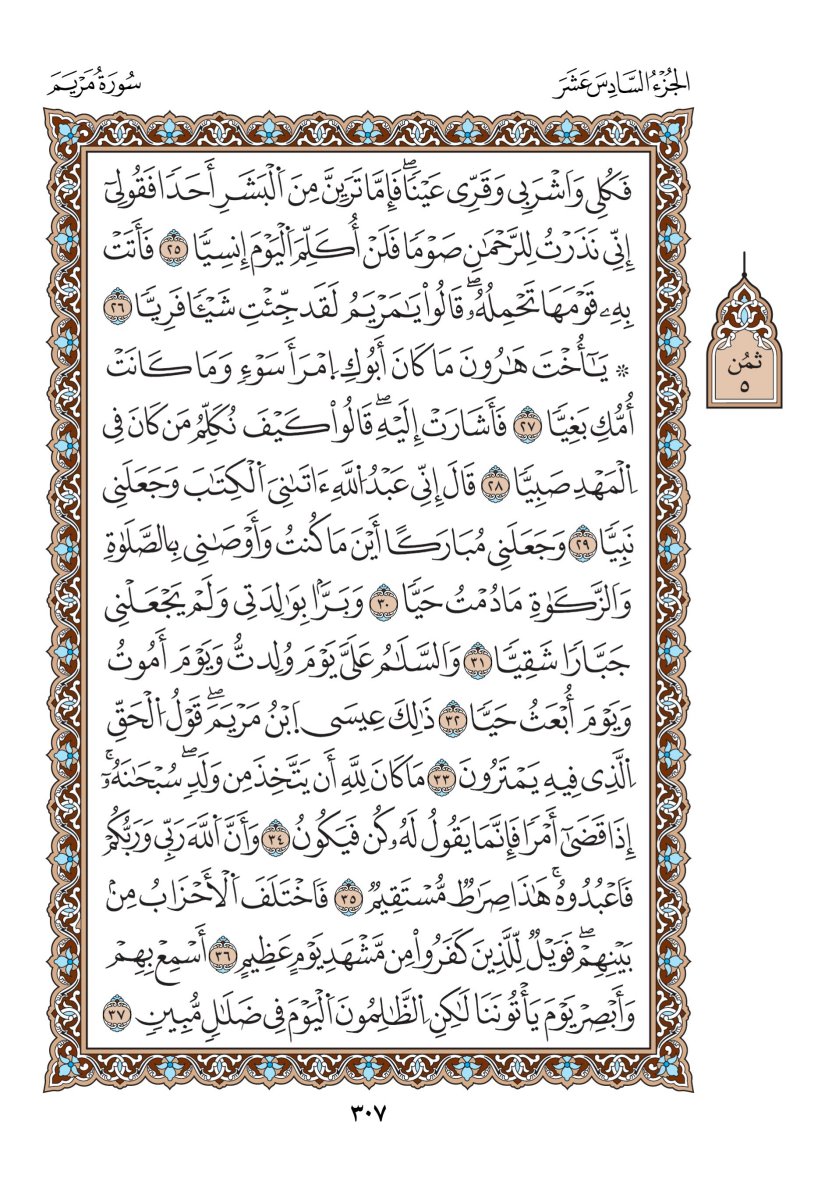 الجُزْءُ السَّادِسَ عَشَرَ
سُورَةُ مَرْيَمَ
فَكُلِى وَاشْرَبِى وَقَرِّى عَيْنًاۖ فَإِمَّا تَرَيِنَّ مِنَ اَ۬لْبَشَرِ أَحَدًا فَقُولِىٓ
إِنِّى نَذَرْتُ لِلرَّحْمَٰنِ صَوْمًا فَلَنْ أُكَلِّمَ اَ۬لْيَوْمَ إِنسِيًّا ٢٥ فَأَتَتْ
بِهِۦ قَوْمَهَا تَحْمِلُهُۥۖ قَالُوا۟ يَٰمَرْيَمُ لَقَد جِّئْتِ شَيْـًٔا فَرِيًّا ٢٦
۞ يَٰٓأُخْتَ هَٰرُونَ مَا كَانَ أَبُوكِ اِ۪مْرَأَ سَوْءٍ وَمَا كَانَتْ
أُمُّكِ بَغِيًّا ٢٧ فَأَشَارَتْ إِلَيْهِۖ قَالُوا۟ كَيْفَ نُكَلِّمُ مَن كَانَ فِى
اِ۬لْمَهْدِ صَبِيًّا ٢٨ قَالَ إِنِّى عَبْدُ اُ۬للَّهِ ءَاتَىٰنِىَ اَ۬لْكِتَٰبَ وَجَعَلَنِى
نَبِيًّا ٢٩ وَجَعَلَنِى مُبَارَكًا أَيْنَ مَا كُنتُ وَأَوْصَٰنِى بِالصَّلَوٰةِ
وَالزَّكَوٰةِ مَا دُمْتُ حَيًّا ٣٠ وَبَرًّۢا بِوَٰلِدَتِى وَلَمْ يَجْعَلْنِى
جَبَّارًا شَقِيًّا ٣١ وَالسَّلَٰمُ عَلَىَّ يَوْمَ وُلِدتُّ وَيَوْمَ أَمُوتُ
وَيَوْمَ أُبْعَثُ حَيًّا ٣٢ ذَٰلِكَ عِيسَى اَ۪بْنُ مَرْيَمَۖ قَوْلُ اُ۬لْحَقِّ
اِ۬لَّذِى فِيهِ يَمْتَرُونَ ٣٣ مَا كَانَ لِلَّهِ أَن يَتَّخِذَ مِن وَلَدٍۖ سُبْحَٰنَهُۥٓۚ
إِذَا قَضَىٰٓ أَمْرًا فَإِنَّمَا يَقُولُ لَهُۥ كُن فَيَكُونُ ٣٤ وَأَنَّ اَ۬للَّهَ رَبِّى وَرَبُّكُمْ
فَاعْبُدُوهُۚ هَٰذَا صِرَٰطٌ مُّسْتَقِيمٌ ٣٥ فَاخْتَلَفَ اَ۬لْأَحْزَابُ مِنۢ
بَيْنِهِمْۖ فَوَيْلٌ لِّلَّذِينَ كَفَرُوا۟ مِن مَّشْهَدِ يَوْمٍ عَظِيمٍ ٣٦ أَسْمِعْ بِهِمْ
وَأَبْصِرْ يَوْمَ يَأْتُونَنَا لَٰكِنِ اِ۬لظَّٰلِمُونَ اَ۬لْيَوْمَ فِى ضَلَٰلٍ مُّبِينٍ ٣٧
ثُمُن
٥
٣٠٧